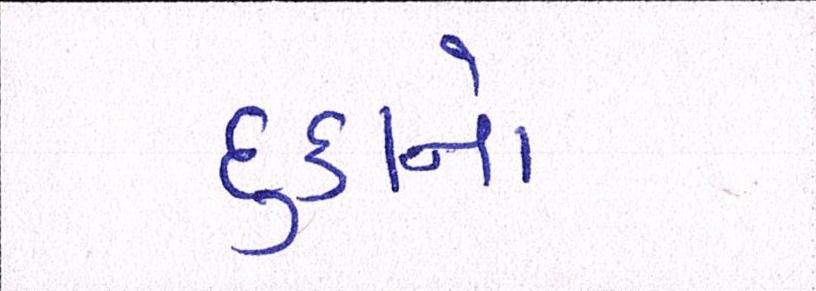 દુકાનો